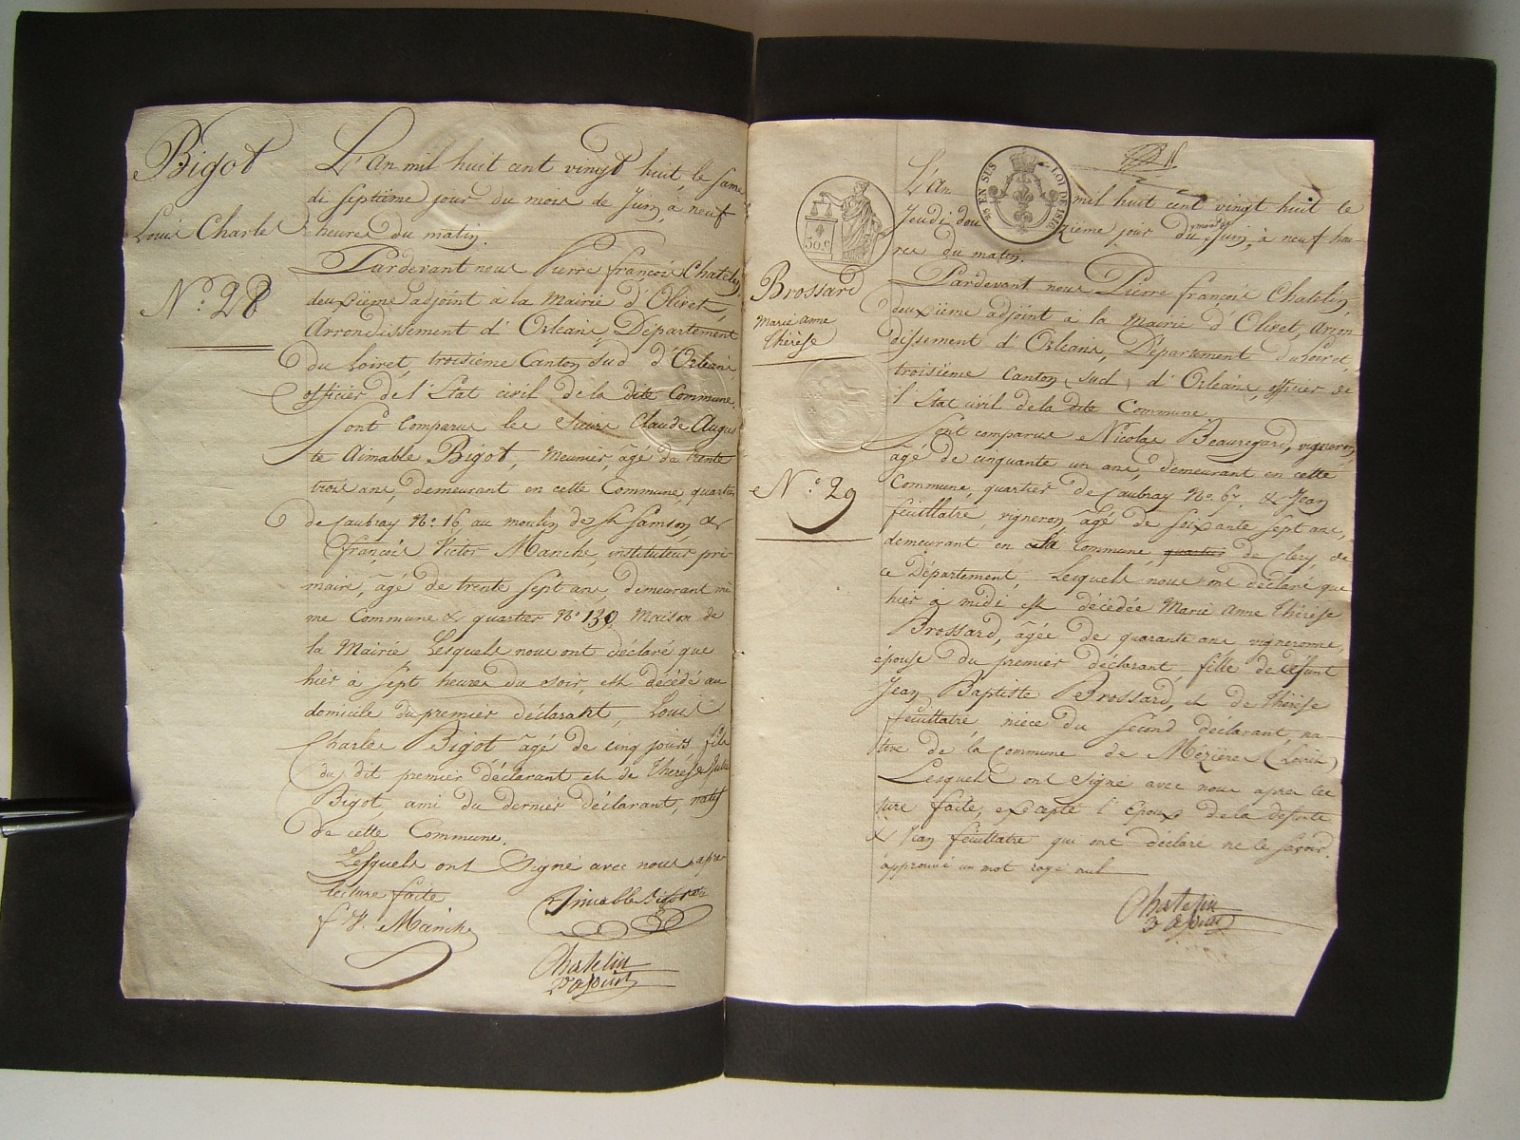 Bigot
Louis Charle
N.º 28
L'An mil huit cent vingt huit, le same
di septième jour du mois de Juin, à neuf
heures du matin.
Pardevant nous Pierre françois Chatelin,
deuxième adjoint à la Mairie d'Olivet,
Arrondissement d'Orléans, Département
du Loiret, troisième Canton Sud d'Orléans,
officier de l'Etat civil de la dite Commune.
Sont Comparus les Sieurs Claude Augus
te Aimable Bigot, Meunier, âgé de trente
trois ans, demeurant en cette Commune, quartier
de Caubray Nº 16 au moulin de St Samson, &
françois Victor Manche, instituteur pri-
maire, âgé de trente sept ans, demeurant mê
me Commune & quartier Nº 130, Maison de
la Mairie Lesquels nous ont déclaré que
hier à sept heures du soir, est décédé au
domicile du premier déclarant, Louis
Charles Bigot âgé de cinq jours fils
du dit premier déclarant et de Thérèse
Bigot, ami du dernier déclarant, natif
de cette Commune.
Lesquels ont Signé avec nous après
lecture faite
f V. Manche
Aimable Bigot
Chatelin
2e adjoint
EN SUS
LOI DE 1816
50 c
Brossard
Marie Anne
Thérèse
N.º 29
L'An mil huit cent vingt huit le
Jeudi douzième jour du mois de Juin, à neuf heu-
res du matin.
Pardevant nous Pierre françois Chatelin,
deuxième adjoint à la Mairie d'Olivet, Arron
dissement d'Orléans, Département du Loiret,
troisième Canton, Sud, d'Orléans, officier de
l'Etat civil de la dite Commune
Sont comparus Nicolas Beauregard, vigneron,
âgé de cinquante un ans, demeurant en cette
Commune, quartier de Caubray Nº 67, & Jean
feuillatre, vigneron, âgé de soixante sept ans,
demeurant en la Commune, quartier de Cléry, de
ce Département, Lesquels nous ont déclaré que
hier à midi est décédée Marie Anne Thérèse
Brossard, âgée de quarante ans vigneronne,
épouse du premier déclarant, fille de défunt
Jean Baptiste Brossard, et de Thérèse
feuillatre, nièce du second déclarant, na-
tive de la Commune de Mézières (Loiret)
Lesquels ont Signé avec nous après lec
ture faite, excepté l'Epoux de la défunte
& Jean feuillatre qui ont déclaré ne le savoir.
approuvé un mot rayé nul
Chatelin
adjoint